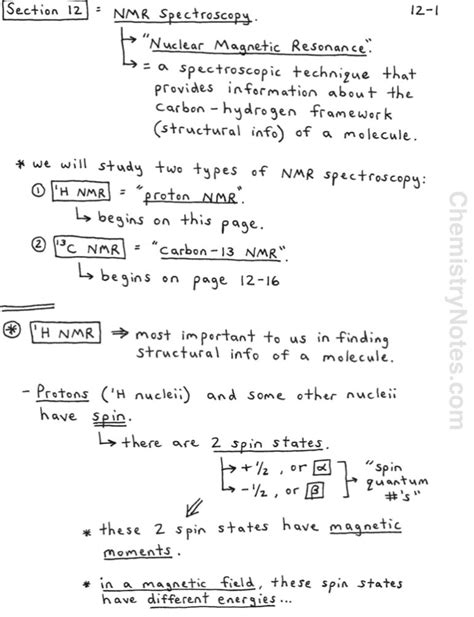 Section 12 = NMR Spectroscopy. 12-1
↳ "Nuclear Magnetic Resonance".
↳ = a spectroscopic technique that
provides information about the
carbon-hydrogen framework
(structural info) of a molecule.
* we will study two types of NMR spectroscopy:
① ¹H NMR = "proton NMR".
↳ begins on this page.
② ¹³C NMR = "carbon-13 NMR".
↳ begins on page 12-16
* ¹H NMR ⇒ most important to us in finding
structural info of a molecule.
- Protons (¹H nucleii) and some other nucleii
have spin.
↳ there are 2 spin states.
↳ +½, or α
↳ -½, or β
"spin
quantum
#'s"
* these 2 spin states have magnetic
moments.
* in a magnetic field, these spin states
have different energies...
ChemistryNotes.com